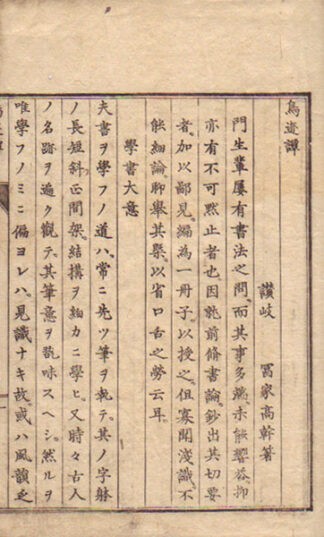 鳥迹譚
讃岐 冨家高幹著
門生輩屢有書法之問而其事多端未能響答抑
亦有不可黙止者也因就前脩書論鈔出其切要
者加以鄙見編為一冊子以授之但寡聞淺識不
能細論聊舉其槩以省口舌之勞云耳
學書大意
夫書ヲ學フノ道ハ常ニ先ツ筆ヲ執テ其ノ字躰
ノ長短斜正間架結構ヲ細カニ學ヒ又時々古人
ノ名跡ヲ遍ク觀テ其筆意ヲ翫味スヘシ然ルヲ
唯學フノミニ偏ヨレハ見識ナキ故或ハ風韻乏